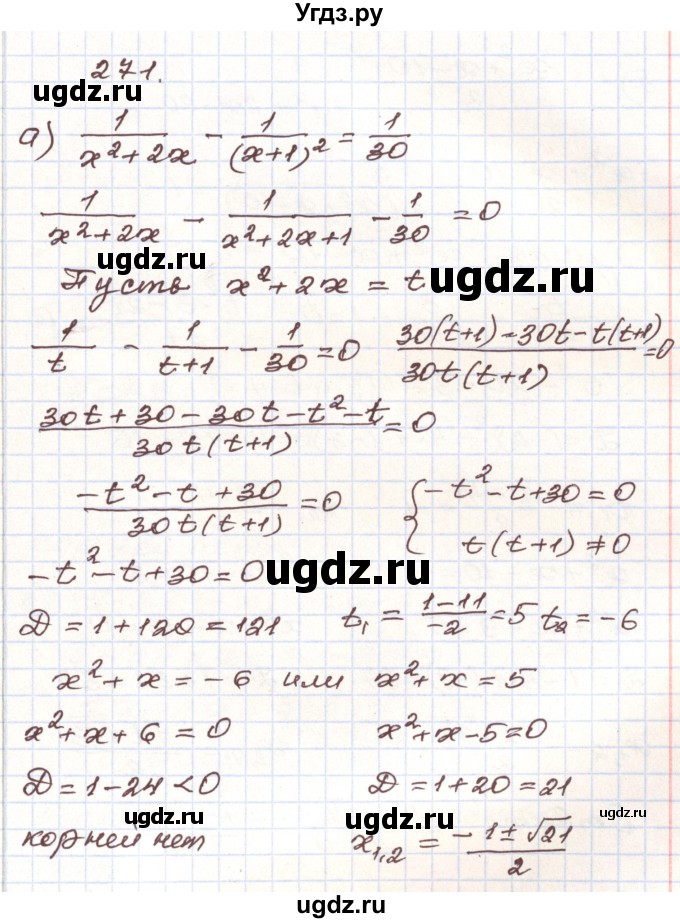 Угдз.ру
271.
ugdz.ru
а) 1/(x²+2x) - 1/(x+1)² = 1/30
1/(x²+2x) - 1/(x²+2x+1) - 1/30 = 0
ugdz.ru
Пусть x²+2x = t
ugdz.ru
1/t - 1/(t+1) - 1/30 = 0 (30(t+1) - 30t - t(t+1))/(30t(t+1)) = 0
(30t + 30 - 30t - t² - t)/(30t(t+1)) = 0
(-t² - t + 30)/(30t(t+1)) = 0 { -t² - t + 30 = 0
t(t+1) ≠ 0
-t² - t + 30 = 0
ugdz.ru
D = 1 + 120 = 121 t₁ = (1-11)/(-2) = 5 t₂ = -6
x² + x = -6 или x² + x = 5
x² + x + 6 = 0 x² + x - 5 = 0
D = 1 - 24 < 0 D = 1 + 20 = 21
ugdz.ru
ugdz.ru
корней нет x₁,₂ = (-1 ± √21)/2
ugdz.ru